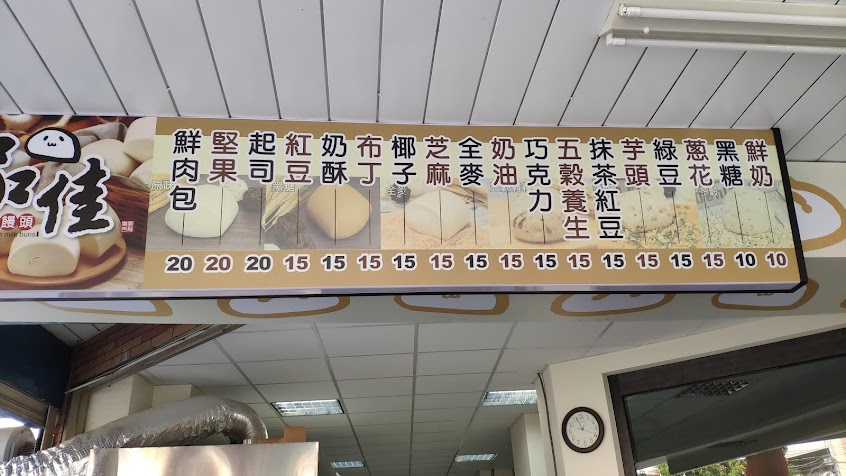 佳
饅頭
milk buns
鮮肉包 20
堅果 20
起司 20
紅豆 15
奶酥 15
布丁 15
椰子 15
芝麻 15
全麥 15
奶油 15
巧克力 15
五穀養生 15
抹茶紅豆 15
芋頭 15
綠豆 15
蔥花 15
黑糖 10
鮮奶 10